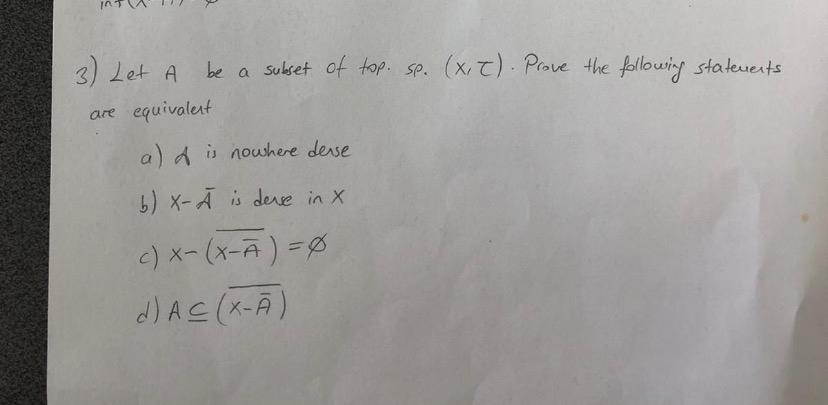 3) Let A be a subset of top. sp. (X, τ). Prove the following statements
are equivalent
a) A is nowhere dense
b) X-Ā is dense in X
c) X-(\overline{X-Ā}) = ∅
d) A ⊆ (\overline{X-Ā})